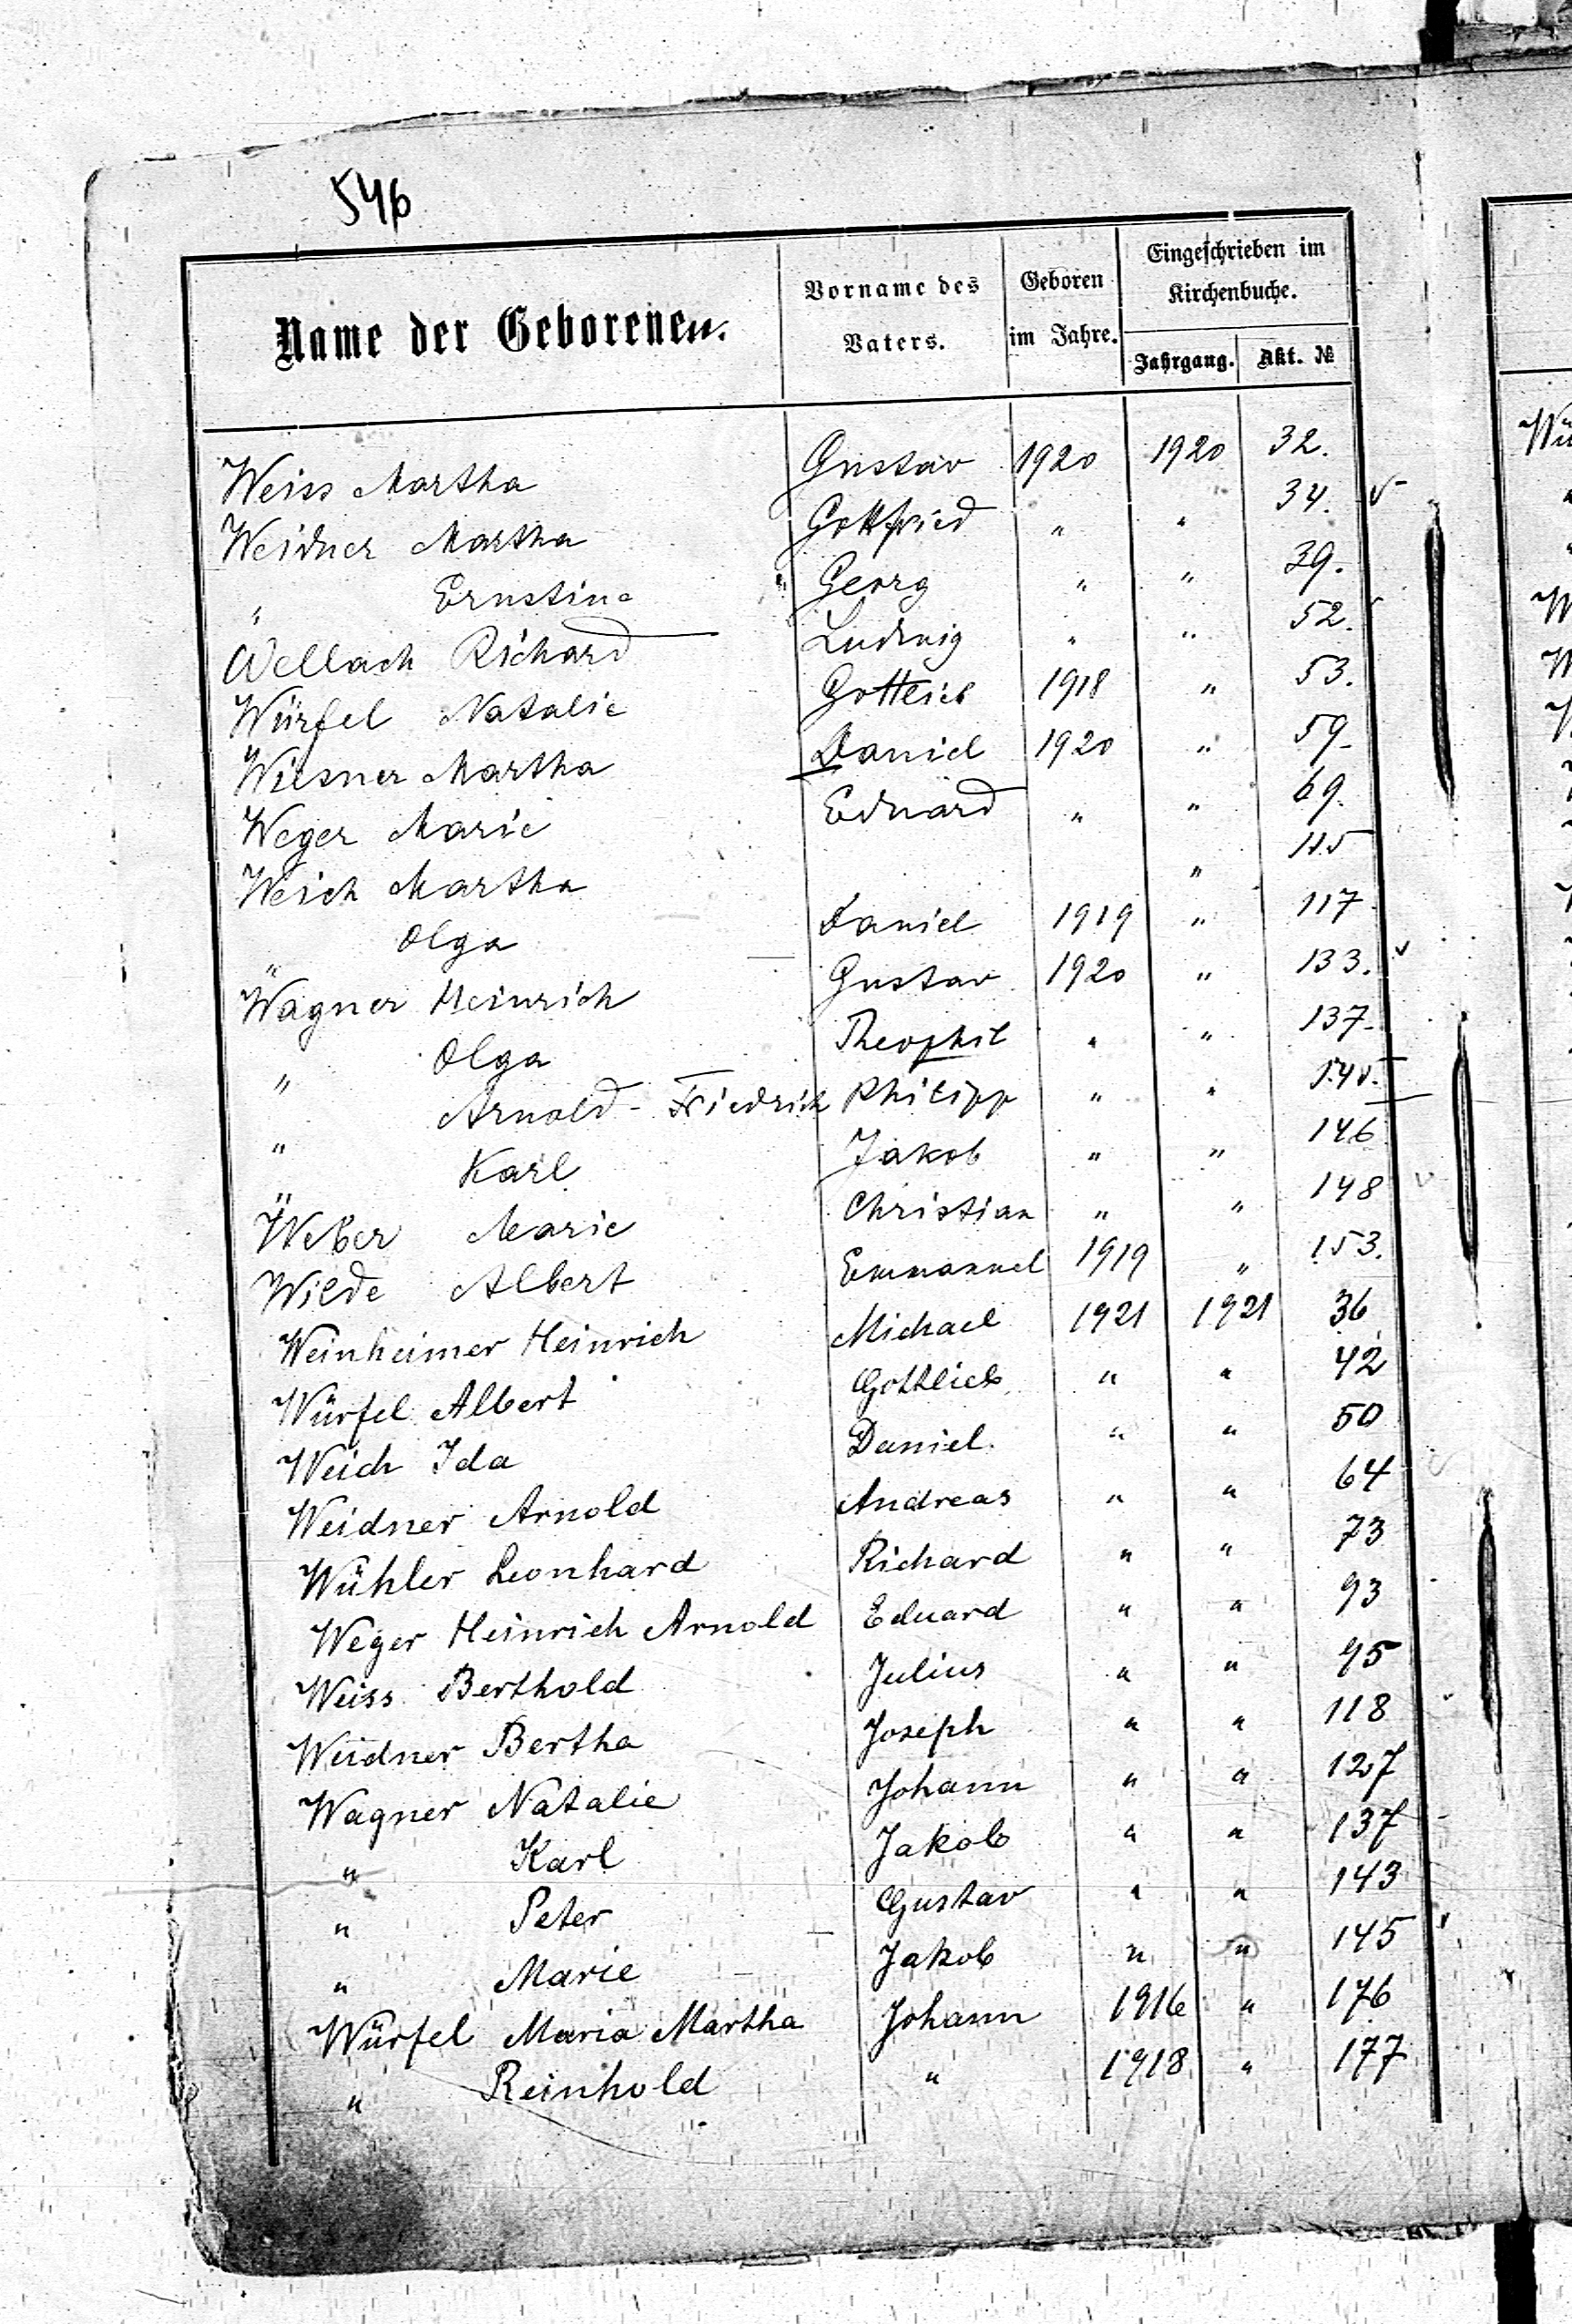 546
Name der Geborenen. Vorname des Vaters. Geboren im Jahre. Eingeschrieben im Kirchenbuche. Jahrgang. Akt. №
Weiss Martha Gustav 1920 1920 32.
Weidner Martha Gottfried " " 34.
" Ernstine Georg " " 39.
Wellach Richard Ludwig " " 52.
Würfel Natalie Gottlieb 1918 " 53.
Wiesner Martha Daniel 1920 " 59.
Weger Marie Eduard " " 69.
Weich Martha " 115
" Olga Daniel 1919 " 117
Wagner Heinrich Gustav 1920 " 133.
" Olga Theophil " " 137.
" Arnold-Friedrich Philipp " "
" Karl Jakob " " 146
Weber Marie Christian " " 148
Wilde Albert Emmanuel 1919 " 153.
Weinheimer Heinrich Michael 1921 1921 36
Würfel Albert Gottlieb " " 42
Weich Ida Daniel " " 50
Weidner Arnold Andreas " " 64
Wühler Leonhard Richard " " 73
Weger Heinrich Arnold Eduard " " 93
Weiss Berthold Julius " " 95
Weidner Bertha Joseph " " 118
Wagner Natalie Johann " " 127
" Karl Jakob " " 137
" Peter Gustav " " 143
" Marie Jakob " " 145
Würfel Maria Martha Johann 1916 " 176
" Reinhold " 1918 " 177